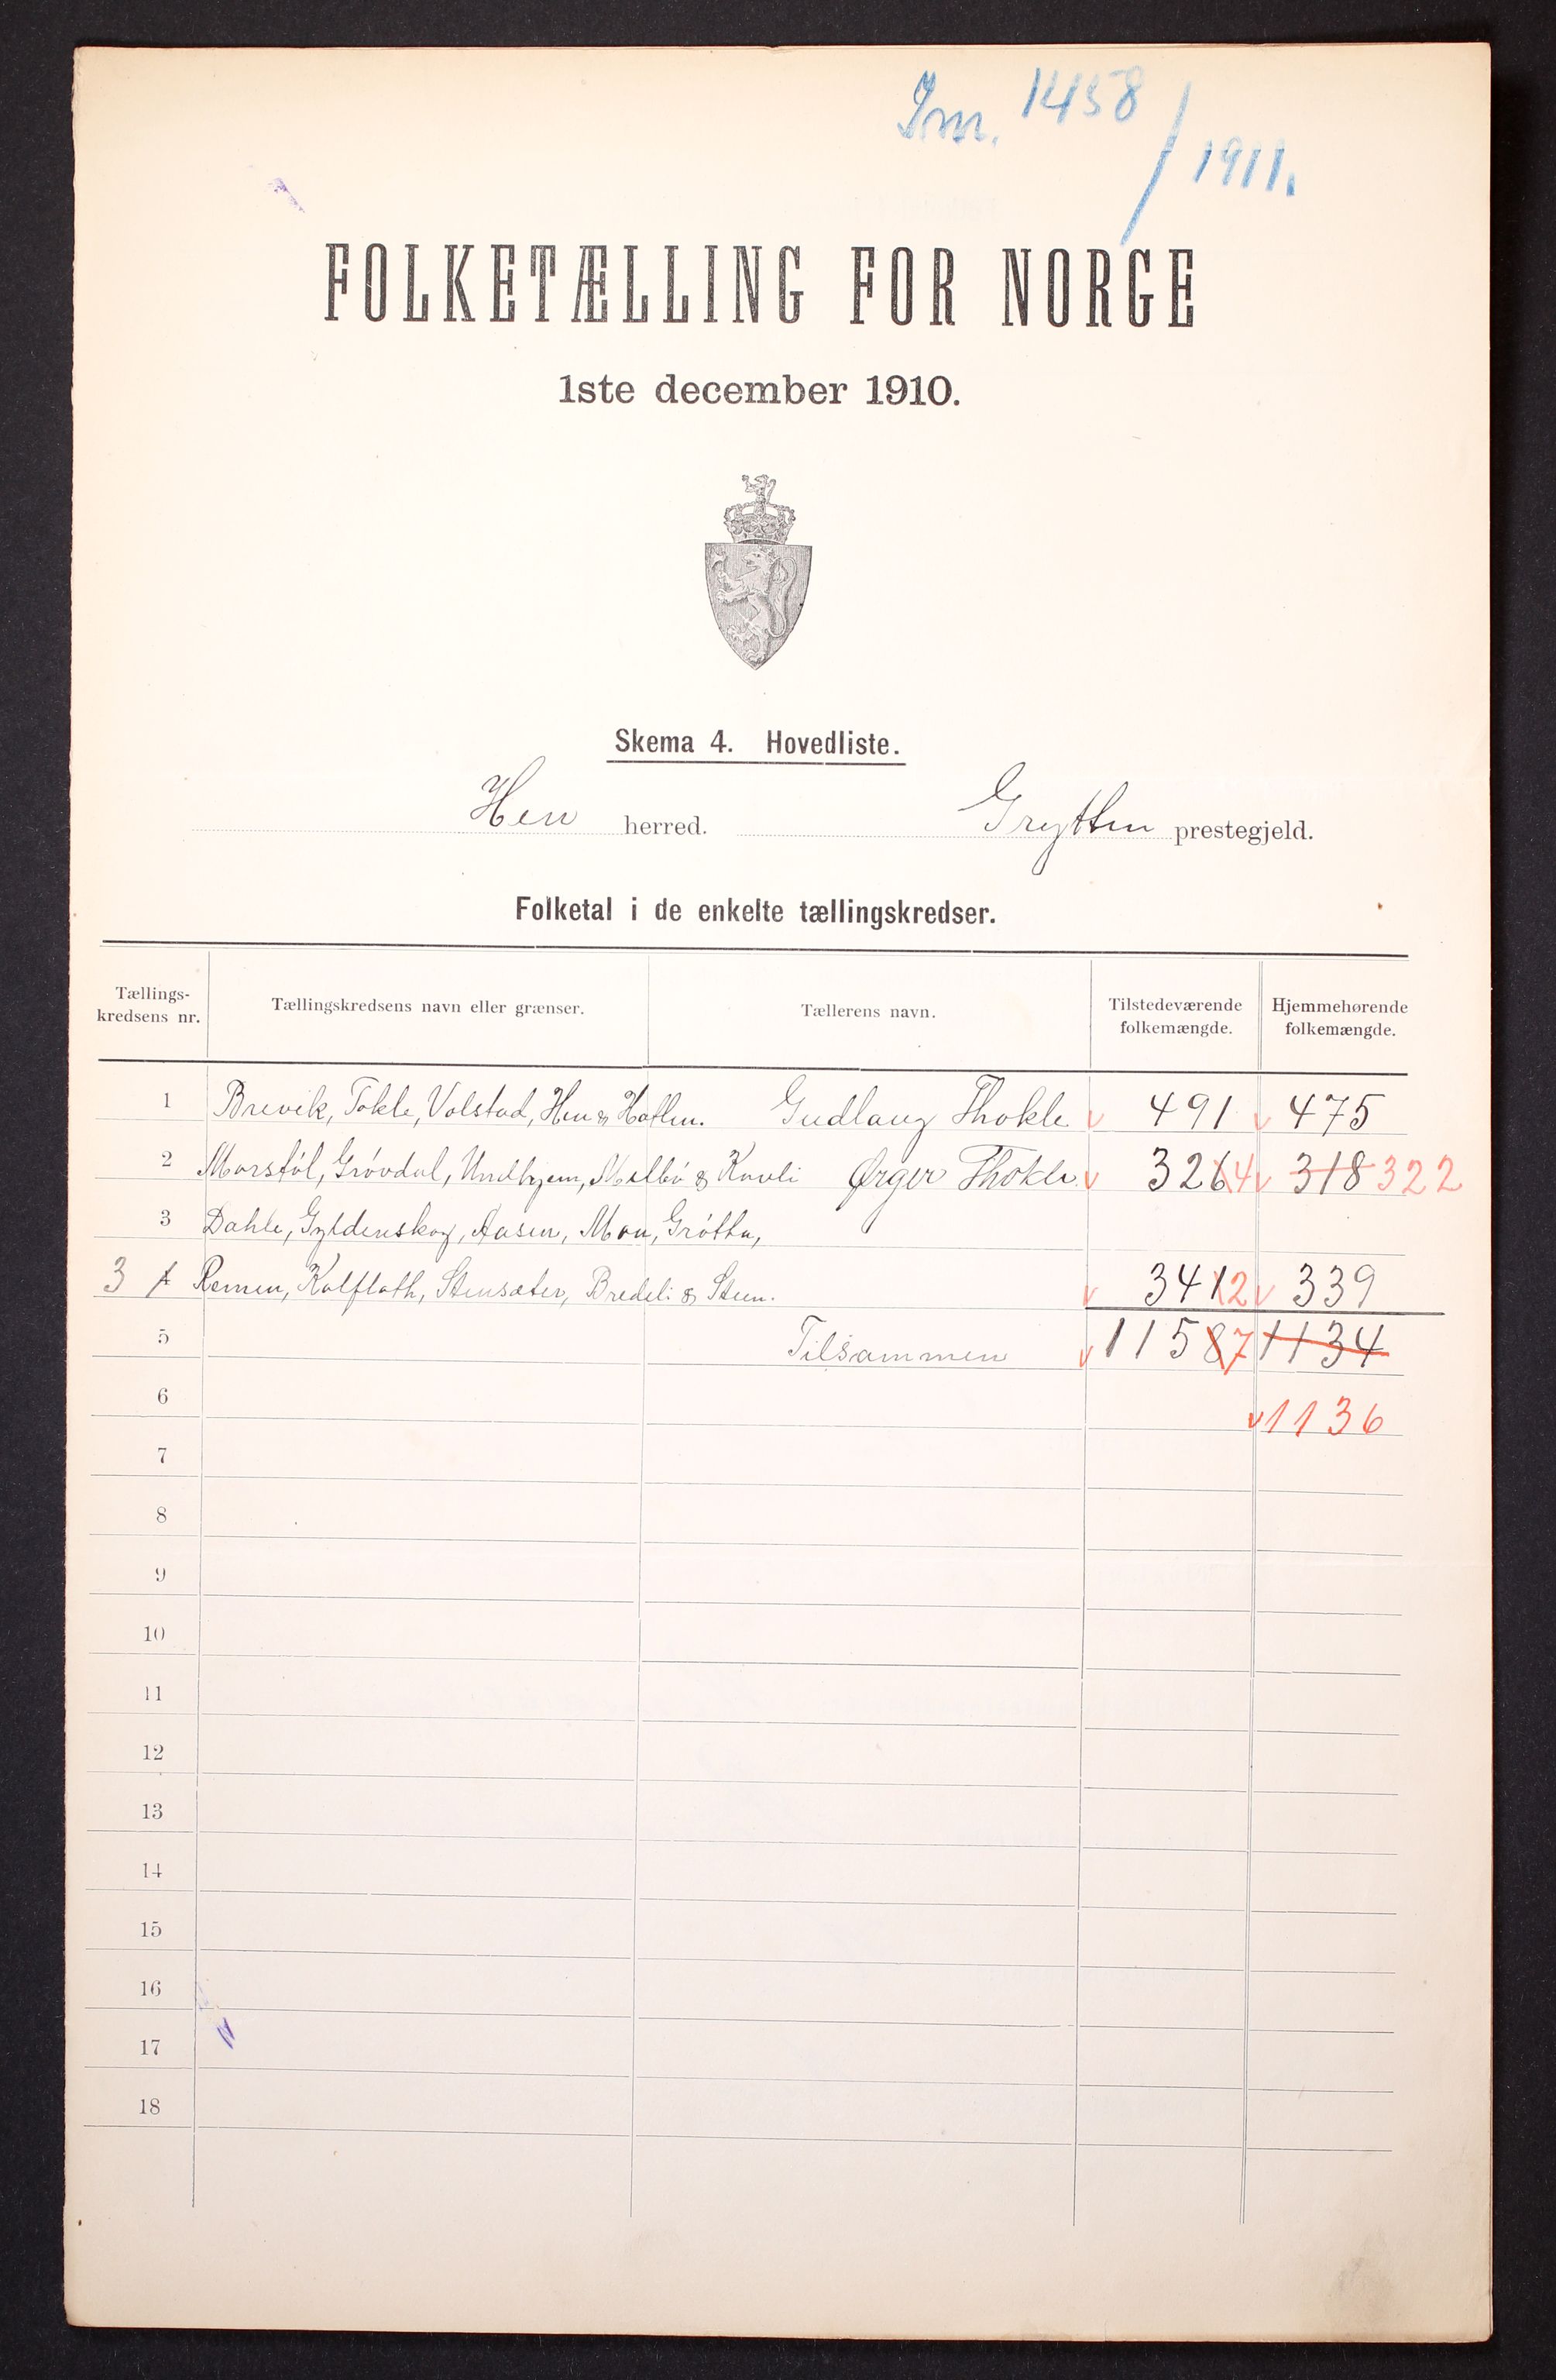 Jm. 1458/1911.
FOLKETÆLLING FOR NORGE
1ste december 1910.
Skema 4. Hovedliste.
Hen herred. Grytten prestegjeld.
Folketal i de enkelte tællingskredser.
Tællings-kredsens nr. Tællingskredsens navn eller grænser. Tællerens navn. Tilstedeværende folkemængde. Hjemmehørende folkemængde.
1 Brevik, Tokle, Volstad, Hen & Hatlen. Gudlaug Thokle v 491 v 475
2 Morstøl, Grøvdal, Undhjem, Melbø & Kavli Ørger Thokle v 3264 v 318 322
3 Dahle, Gyldenskog, Aasen, Moa, Grøtta,
3 4 Remen, Kalflath, Stensæter, Bredeli & Steen. v 3412 v 339
5 Tilsammen v 11587 1134
6 v 1136
7
8
9
10
11
12
13
14
15
16
17
18